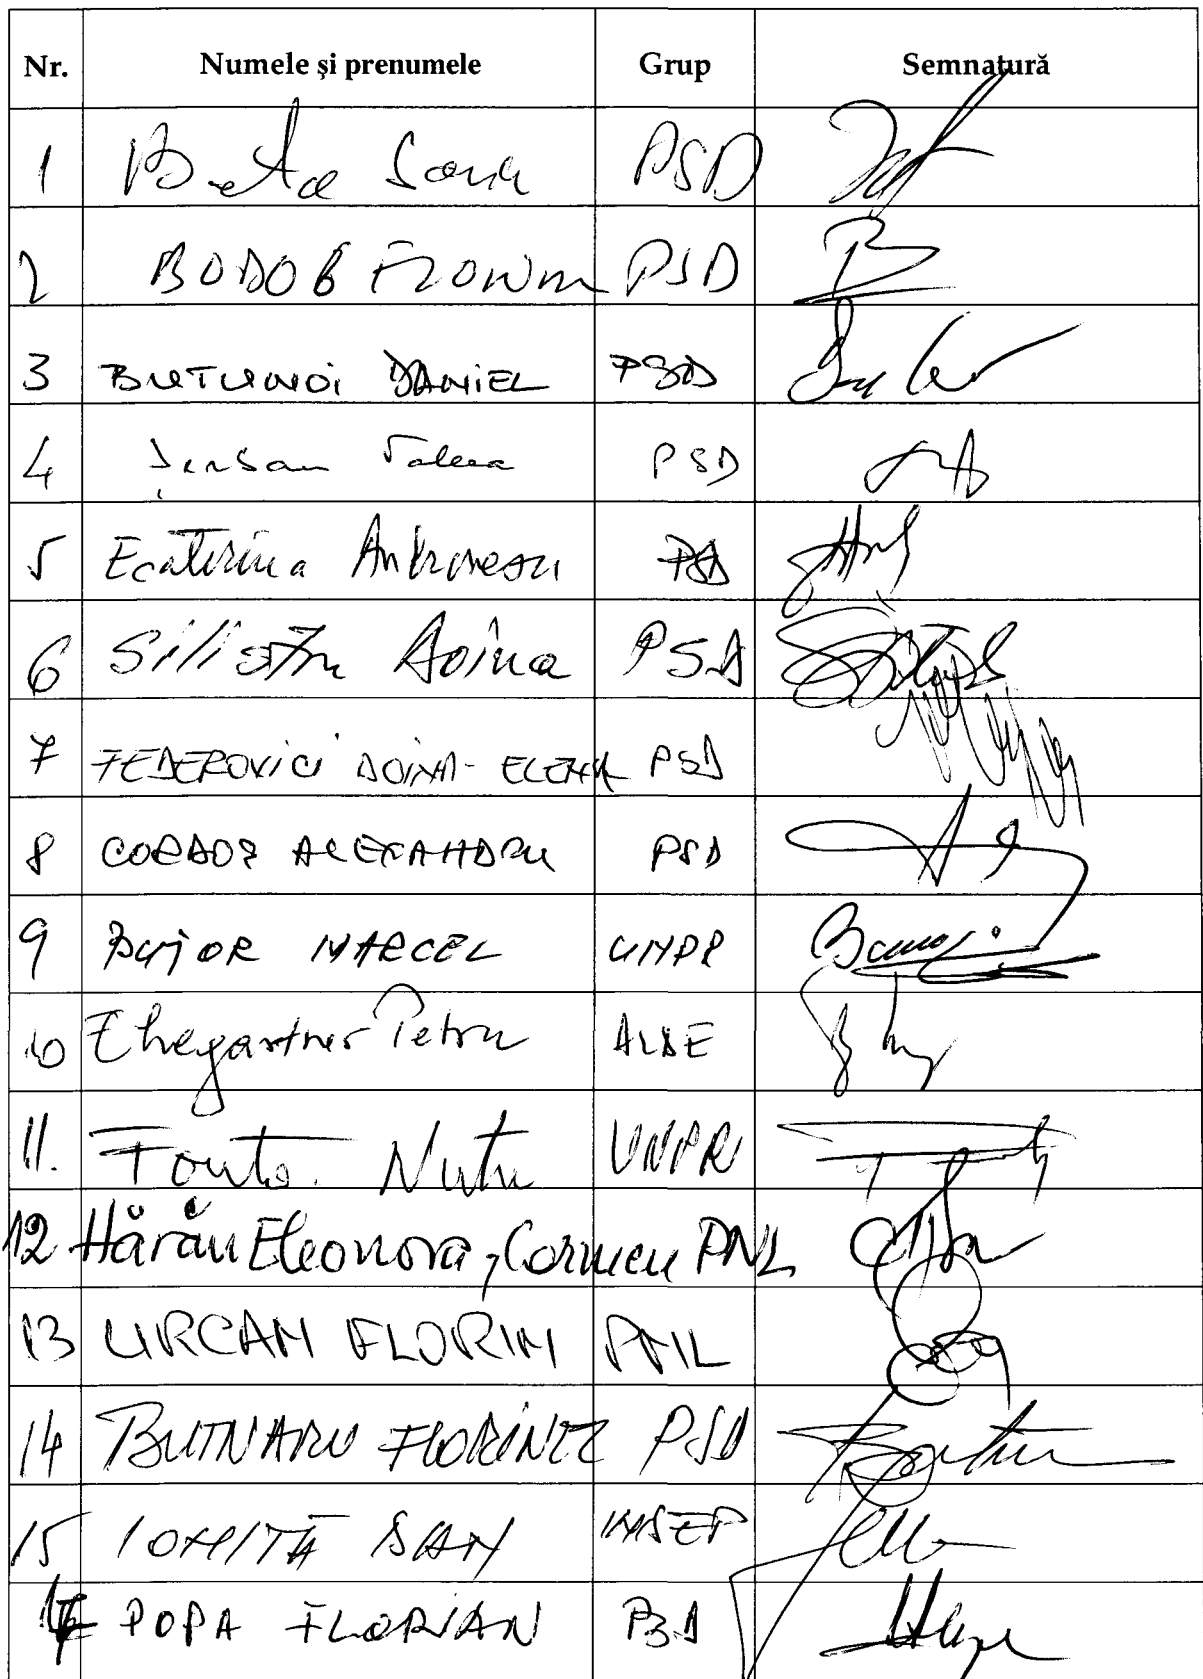 Nr. Numele și prenumele Grup Semnatură
1 PSD
2 BODOG FLORIAN PSD
3 BUTUNOI DANIEL PSD
4 PSD
5 Ecaterina Andronescu PSD
6 Silistru Doina PSD
7 FEDEROVICI DOINA-ELENA PSD
8 CORDOȘ ALEXANDRU PSD
9 BUJOR MARCEL UNPR
10 Ehegartner Petru ALDE
11. Fonta Nuțu UNPR
12 Hărău Eleonora, Carmen PNL
13 URCAN FLORIN PNL
14 BUTNARU FLORINEL PSD
15 IONIȚĂ DAN INDEP
POPA FLORIAN PSD